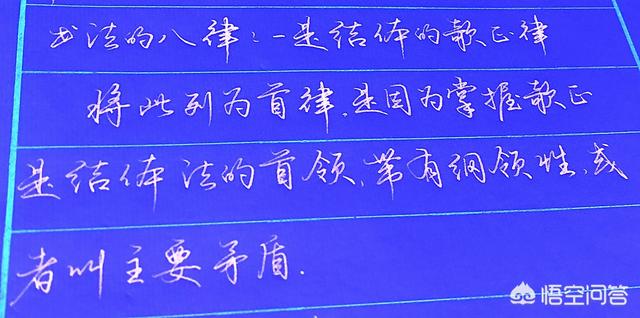 书法的八律：一是结体的欹正律
将此列为首律，是因为掌握欹正
是结体法的首领，带有纲领性，或
者叫主要矛盾．
悟空问答